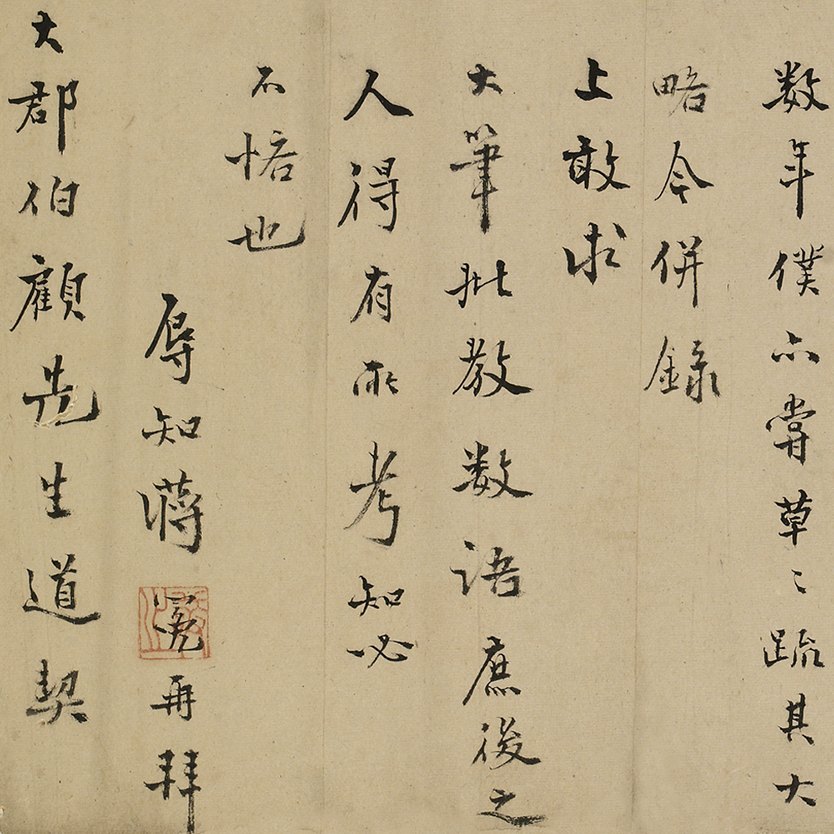 数年僕亦嘗草〻疏其大
略今併録
上敢求
大筆批教数語庶後之
人得有所考知必
不悋也
辱知蔣冕再拜
大郡伯顧先生道契